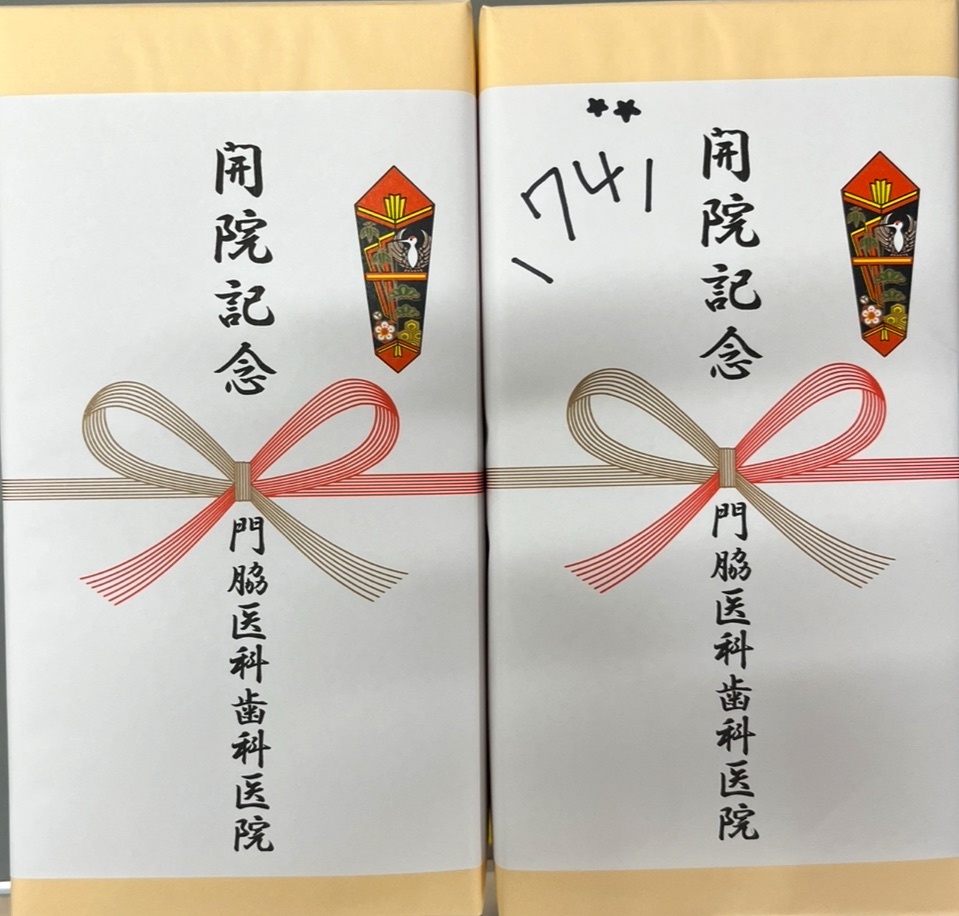 開院記念
門脇医科歯科医院
★★
1741
開院記念
門脇医科歯科医院